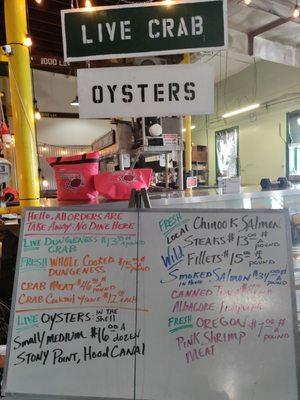 LIVE CRAB
OYSTERS
Hello, All orders are
take away No Dine Here
Live Dungeness
Crab
$13
A
POUND
Fresh Whole Cooked
Dungeness
A
POUND
Crab Meat
A
POUND
Crab Cocktail
each
Live Oysters: in the
Shell
Small/medium $16 00 A
dozen
Stony Point, Hood Canal
Fresh
Local
Chinook Salmon
Wild
Steaks $13
A
POUND
Fillets $15
A
POUND
Smoked Salmon
A
POUND
Canned Tuna
Albacore
Fresh Oregon
Pink Shrimp
Meat
A
POUND